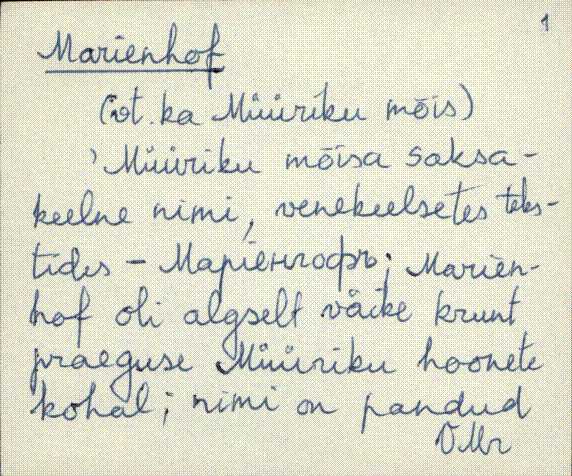 1
Marienhof
(vt. ka Müüriku mõis)
'Müüriku mõisa saksa-
keelne nimi, venekeelsetes teks-
tides – Маріенгофъ; Marien-
hof oli algselt väike krunt
praeguse Müüriku hoonete
kohal; nimi on pandud